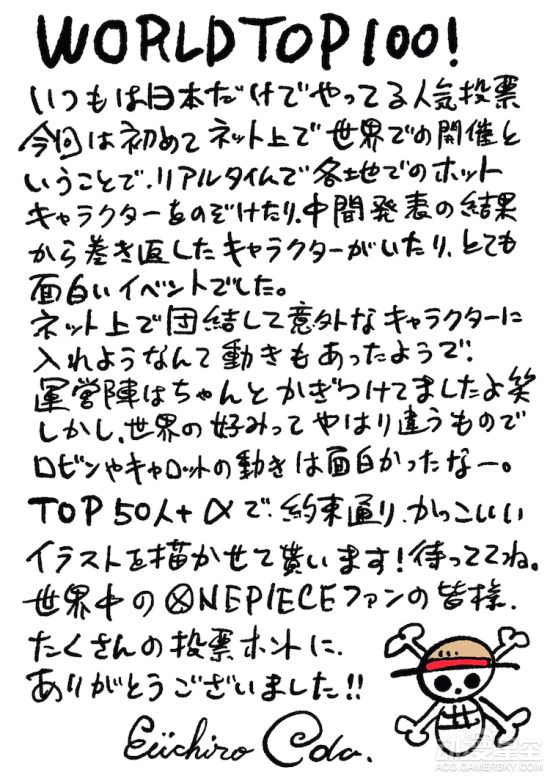 WORLD TOP 100!
いつもは日本だけでやってる人気投票
今回は初めてネット上で世界での開催と
いうことで、リアルタイムで各地でのホット
キャラクターをのぞけたり、中間発表の結果
から巻き返したキャラクターがいたり、とても
面白いイベントでした。
ネット上で団結して意外なキャラクターに
入れようなんて動きもあったようで、
運営陣はちゃんとかぎつけてましたよ笑
しかし、世界の好みってやはり違うもので
ロビンやキャロットの動きは面白かったなー。
TOP50人+αで、約束通り、かっこいい
イラストを描かせて貰います!待っててね。
世界中のONEPIECEファンの皆様、
たくさんの投票ホントに、
ありがとうございました!!
Eiichiro Oda.
动漫星空
ACG.GAMERSKY.COM